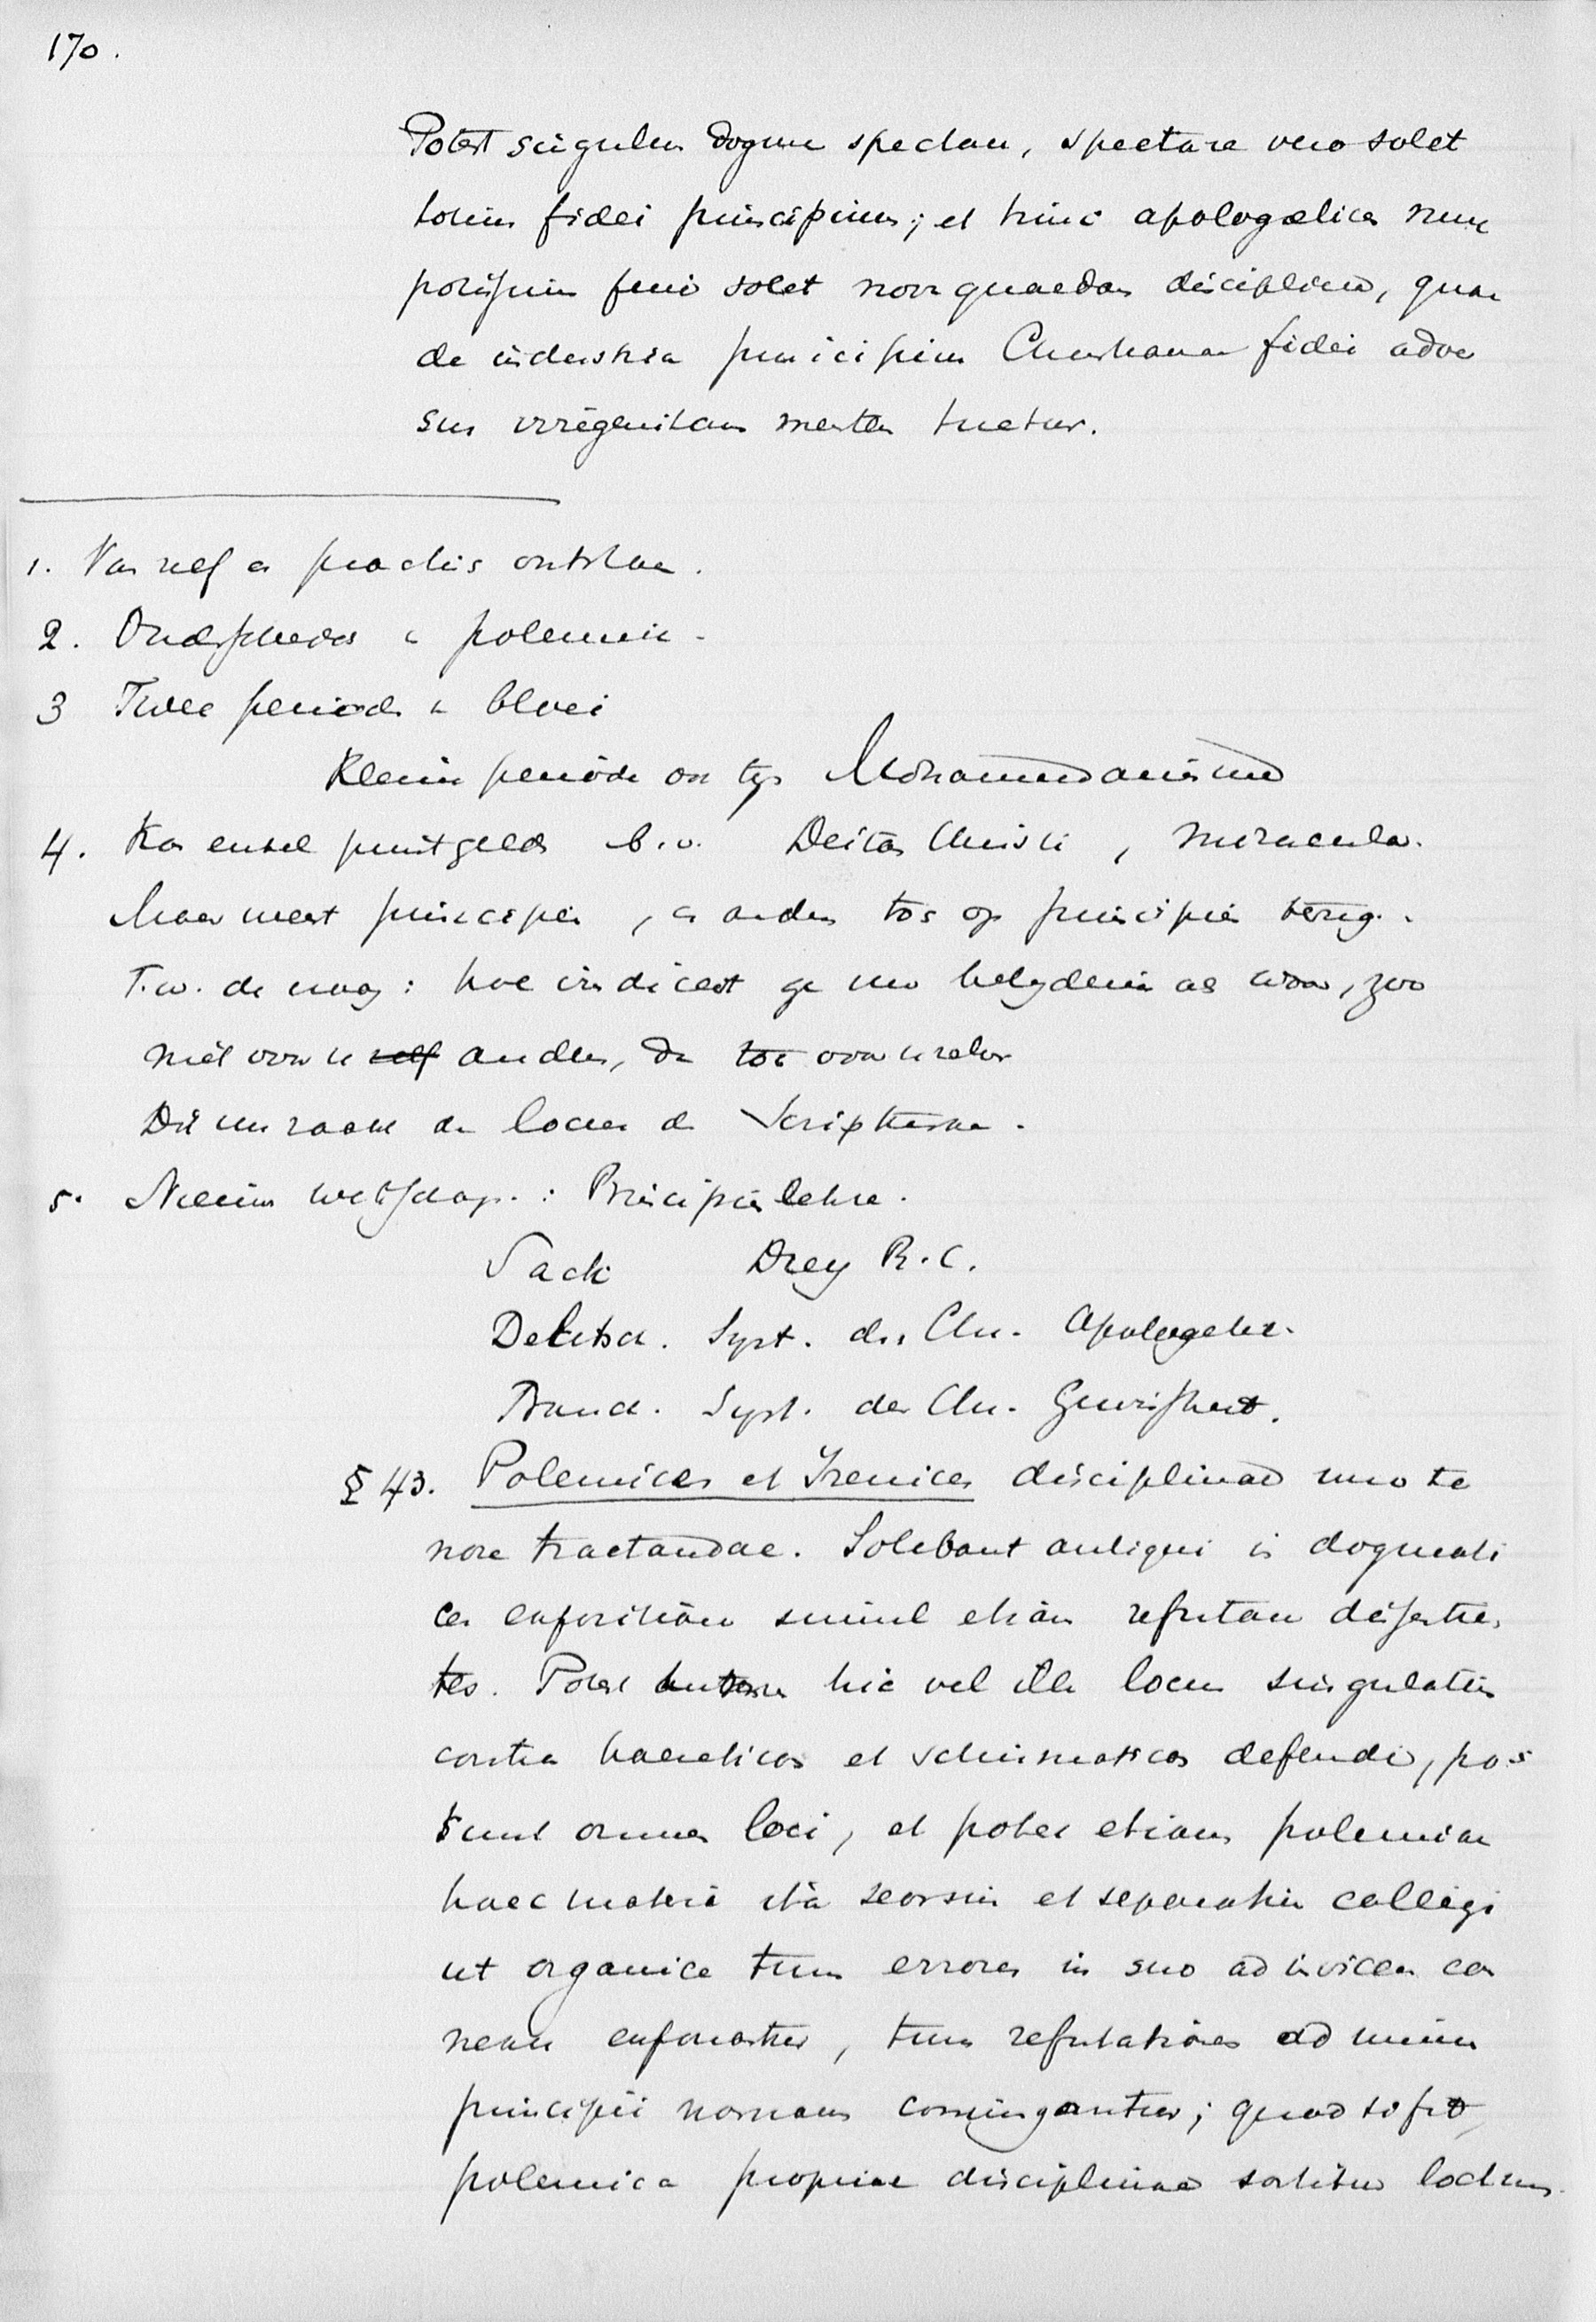 170.
Potest singulum dogma spectare, spectare vero solet
totius fidei principium; et hinc apologetica nunc
potissimum fieri solet nova quaedam disciplina, quae
de industria principium Christianae fidei adver
sus irregenitam mentem tuetur.
1. Van zelf in practijs ontstaan.
2. Onderscheiden v polemiek.
3 Twee perioden v bloei
Kleine periode ook tgn Mohammedanisme
4. Kan enkel punt gelden b.v. Deitas Christi, miracula.
Maar meest principieel, en andere toch op principieel terug.
T.w. de vraag: hoe vindiceert ge uw belydenis als waar, zoo
niet voor u zelf anderen, dan toch voor u zelven
Dit nu raakt den locus de Scriptura.
5. Nieuwe wetsch.: Principienlehre.
Sack Drey R.C.
Delitsch. Syst. der Chr. Apologetik.
Franck. Syst. der Chr. Gewissheit.
§ 43. Polemices et Irenices disciplinae uno te
nore tractandae. Solebant antiqui in dogmati
ces expositione simul etiam refutare dissentien
tes. Potest autem hic vel ille locus singulatim
contra haereticos et schismaticos defendi, pos
sunt omnes loci, et potest etiam polemica
haec materia ita seorsim et separatim colligi
ut organice tum errores in suo ad invicem con
nexu exponantur, tum refutationes ad unius
principii normamconjungantur; quod si fit,
polemica propriae disciplinae sortitur locum.